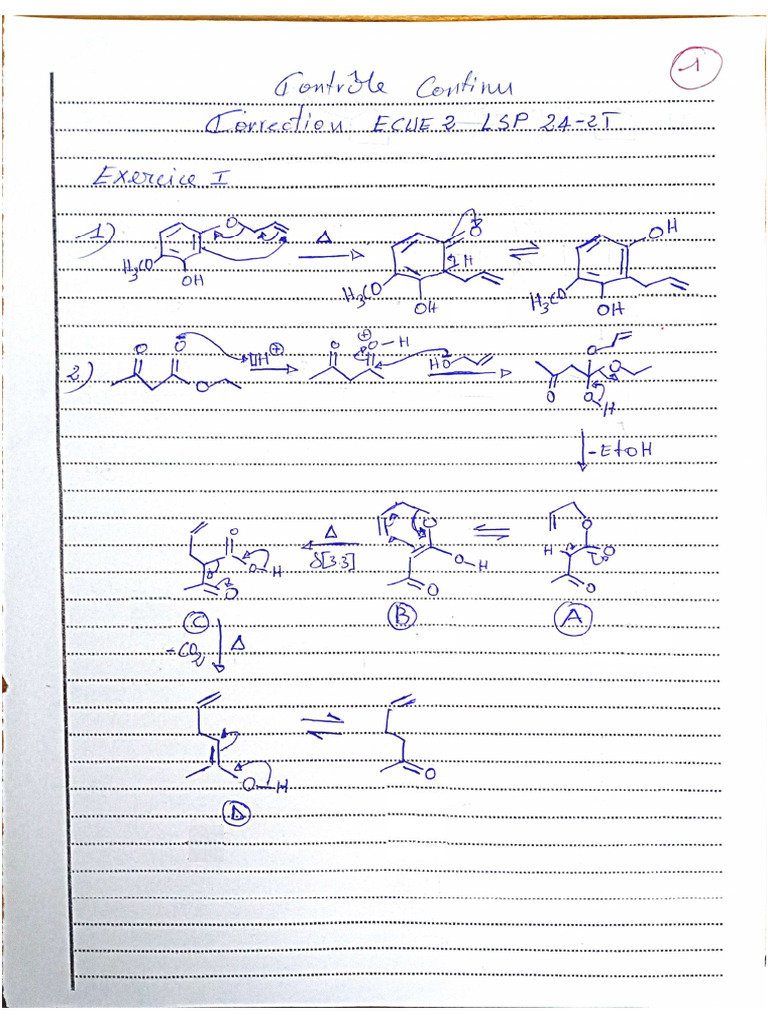 1
Contrôle Continu
Correction ECUE 2 LSP 24-25
Exercice I
1) O Δ O H OH
H₃CO OH H₃CO OH H₃CO OH
2) O O O ⊕ H⊕ O O-H HO O O O O H
-EtOH
O O-H O Δ δ[3,3] O O-H O H O O O
C B A
-CO₂ Δ
O-H O
D